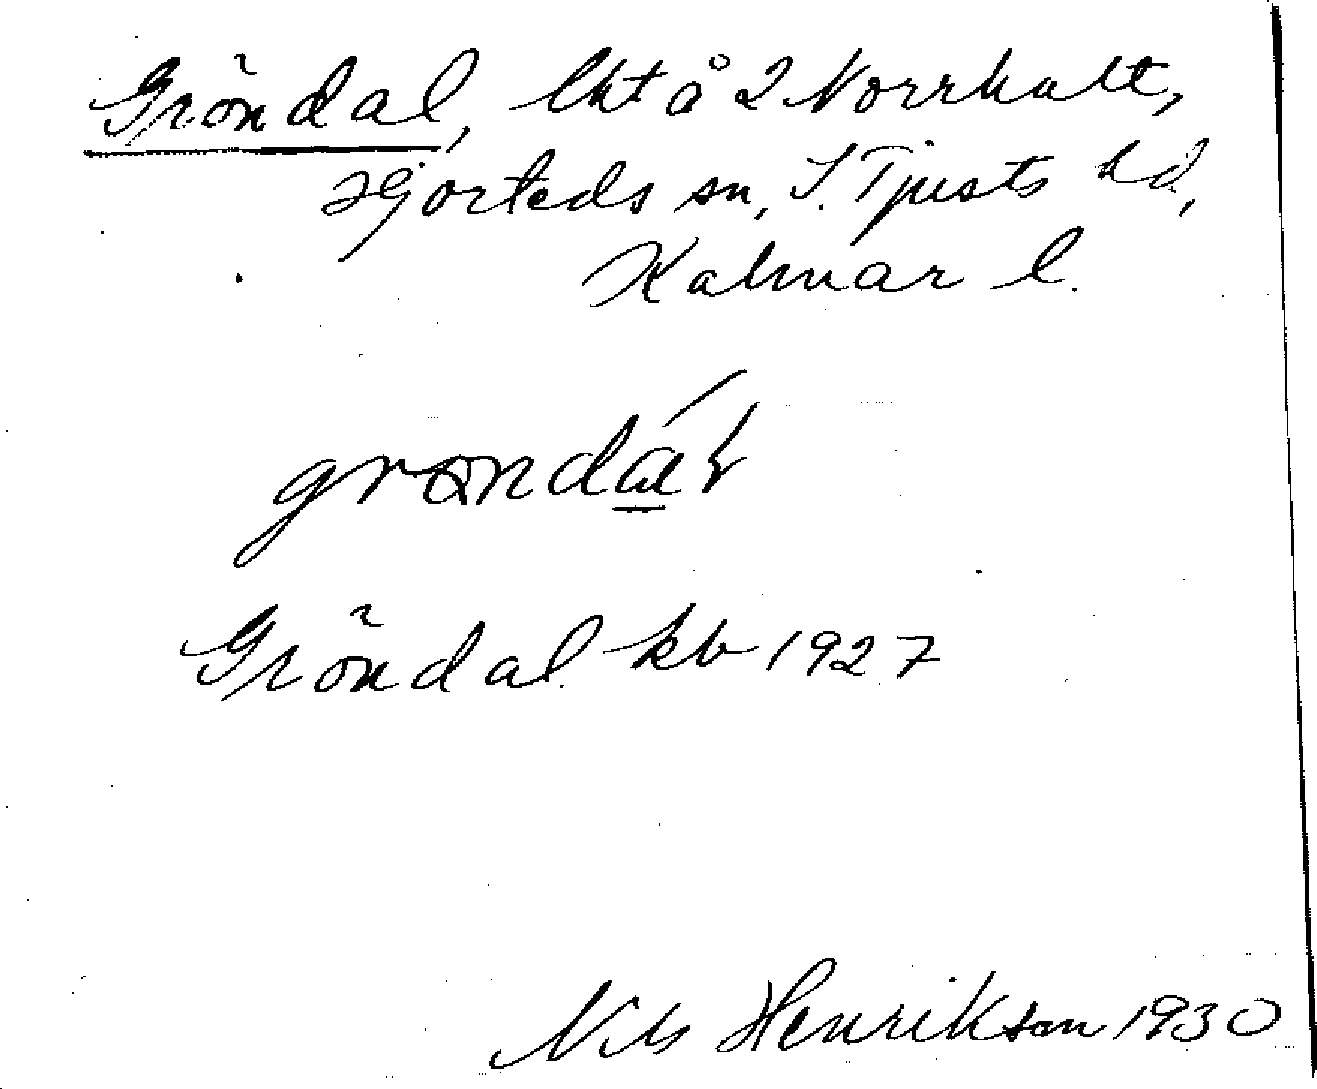 Gröndal, lht å 2 Norrhult,
Hjorteds sn, S. Tjusts hd,
Kalmar l.
Gröndal kb 1927
Nils Henrikson 1930